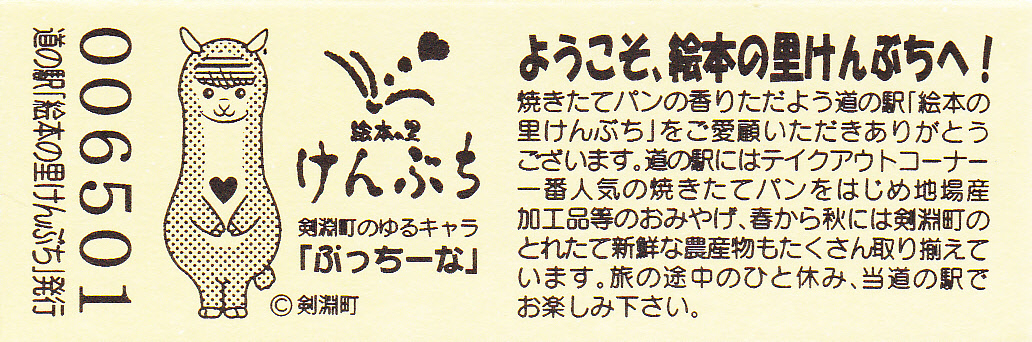 006501
道の駅「絵本の里けんぶち」発行
絵本の里
けんぶち
剣淵町のゆるキャラ
「ぷっちーな」
© 剣淵町
ようこそ、絵本の里けんぶちへ！
焼きたてパンの香りただよう道の駅「絵本の
里けんぶち」をご愛顧いただきありがとう
ございます。道の駅にはテイクアウトコーナー
一番人気の焼きたてパンをはじめ地場産
加工品等のおみやげ、春から秋には剣淵町の
とれたて新鮮な農産物もたくさん取り揃えて
います。旅の途中のひと休み、当道の駅で
お楽しみ下さい。